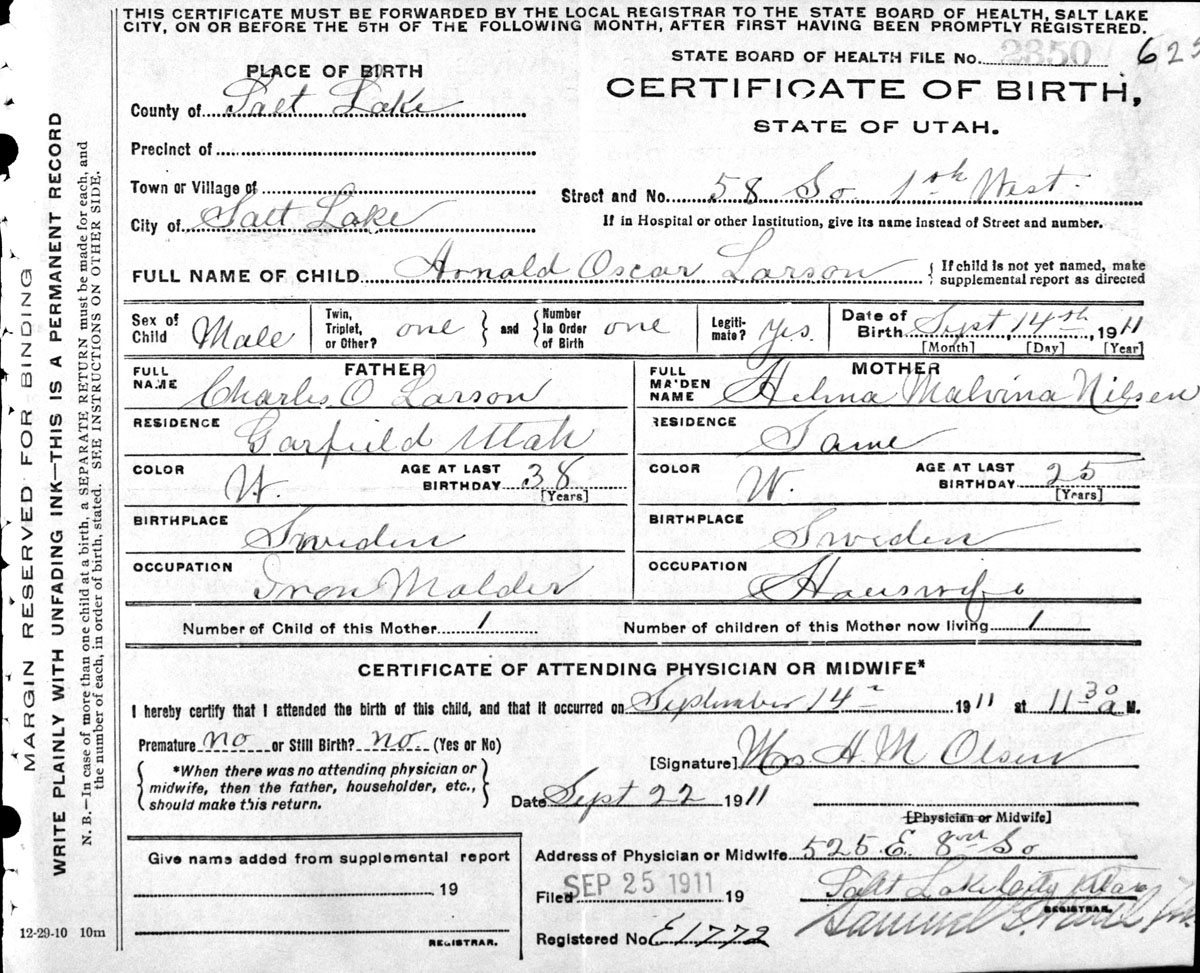 THIS CERTIFICATE MUST BE FORWARDED BY THE LOCAL REGISTRAR TO THE STATE BOARD OF HEALTH, SALT LAKE
CITY, ON OR BEFORE THE 5TH OF THE FOLLOWING MONTH, AFTER FIRST HAVING BEEN PROMPTLY REGISTERED.
STATE BOARD OF HEALTH FILE No. 2350 625
PLACE OF BIRTH
CERTIFICATE OF BIRTH,
STATE OF UTAH.
County of Salt Lake
Precinct of
Town or Village of
Street and No. 58 So 1st West
City of Salt Lake
If in Hospital or other Institution, give its name instead of Street and number.
FULL NAME OF CHILD Arnold Oscar Larson { If child is not yet named, make supplemental report as directed
Sex of Child Male Twin, Triplet, or Other? one } and { Number In Order of Birth one Legiti-mate? Yes. Date of Birth Sept, 14th, 1911
[Month] [Day] [Year]
FATHER MOTHER
FULL NAME Charles O Larson FULL MAIDEN NAME Helma Malvina Nilsen
RESIDENCE Garfield Utah RESIDENCE Same
COLOR W. AGE AT LAST BIRTHDAY 38 [Years] COLOR W. AGE AT LAST BIRTHDAY 25 [Years]
BIRTHPLACE Sweden BIRTHPLACE Sweden
OCCUPATION Iron Molder OCCUPATION Houswife
Number of Child of this Mother 1 Number of children of this Mother now living 1
CERTIFICATE OF ATTENDING PHYSICIAN OR MIDWIFE*
I hereby certify that I attended the birth of this child, and that it occurred on September 14th 1911 at 11 30 a M.
Premature no or Still Birth? no (Yes or No)
[Signature] Mrs H. M Olsen
{ *When there was no attending physician or
midwife, then the father, householder, etc.,
should make this return. }
Date Sept 22 1911
[Physician or Midwife]
Give name added from supplemental report
Address of Physician or Midwife 525 E. 8th So
19
Filed SEP 25 1911 19 Salt Lake City Utah
REGISTRAR.
REGISTRAR.
Registered No E1772 Samuel G.
12-29-10 10m
MARGIN RESERVED FOR BINDING
WRITE PLAINLY WITH UNFADING INK—THIS IS A PERMANENT RECORD
N. B.—In case of more than one child at a birth, a SEPARATE RETURN must be made for each, and
the number of each, in order of birth, stated. SEE INSTRUCTIONS ON OTHER SIDE.